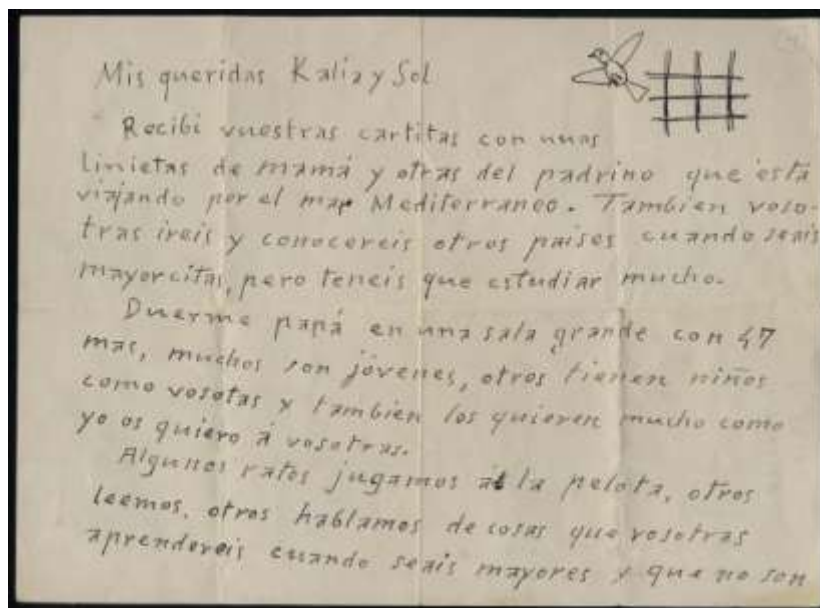 Mis queridas Kalia y Sol
Recibi vuestras cartitas con unas
linietas de mamá y otras del padrino que está
viajando por el mar Mediterraneo. Tambien voso-
tras ireis y conocereis otros paises cuando seais
mayorcitas, pero teneis que estudiar mucho.
Duerme papá en una sala grande con 47
mas, muchos son jóvenes, otros tienen niños
como vosotas y tambien los quieren mucho como
yo os quiero á vosotras.
Algunos ratos jugamos a la pelota, otros
leemos, otros hablamos de cosas que vosotras
aprendereis cuando seais mayores y que no son